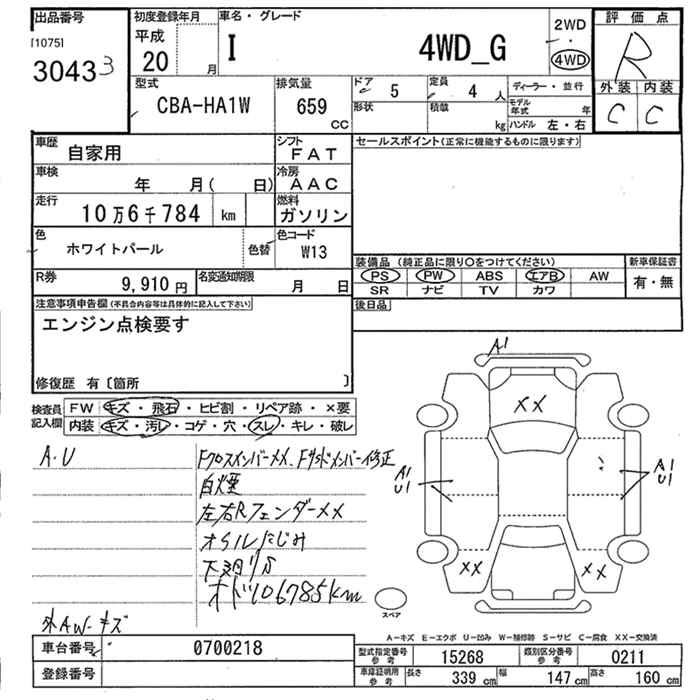 出品番号
[1075]
3043 3
初度登録年月
平成
20 月
車名・グレード
I 4WD_G
2WD
・
4WD
評価点
R
外装 内装
C C
型式
CBA-HA1W
排気量
659
CC
ドア 5
定員 4 人
形状
積載 kg
ディーラー・並行
モデル年式 年
ハンドル 左・右
車歴
自家用
シフト
FAT
車検
年 月( 日)
冷房
AAC
走行
10万6千784 km
燃料
ガソリン
色
ホワイトパール
色替
色コード
W13
R券
9,910 円
名変通知期限
月 日
セールスポイント(正常に機能するものに限ります)
装備品 (純正品に限り○をつけてください)
PS PW ABS エアB AW
SR ナビ TV カワ
新車保証書
有・無
後日品
注意事項申告欄(不具合内容等は具体的に記入して下さい)
エンジン点検要す
修復歴 有〔箇所 〕
検査員記入欄
FW キズ・飛石・ヒビ割・リペア跡・×要
内装 キズ・汚レ・コゲ・穴・スレ・キレ・破レ
A.U
FクロスインバーXX、Fサイドメンバー修正
白煙
左右RフェンダーXX
オイルにじみ
下廻りS
オド106785km
外AW-キズ
A1
XX
A1
U1
A1
U1
XX
XX
スペア
A-キズ E-エクボ U-凹み W-補修跡 S-サビ C-腐食 XX-交換済
車台番号 0700218
登録番号
型式指定番号
参考
15268
類別区分番号
参考
0211
車庫証明用
参考
長さ 339 cm
幅 147 cm
高さ 160 cm